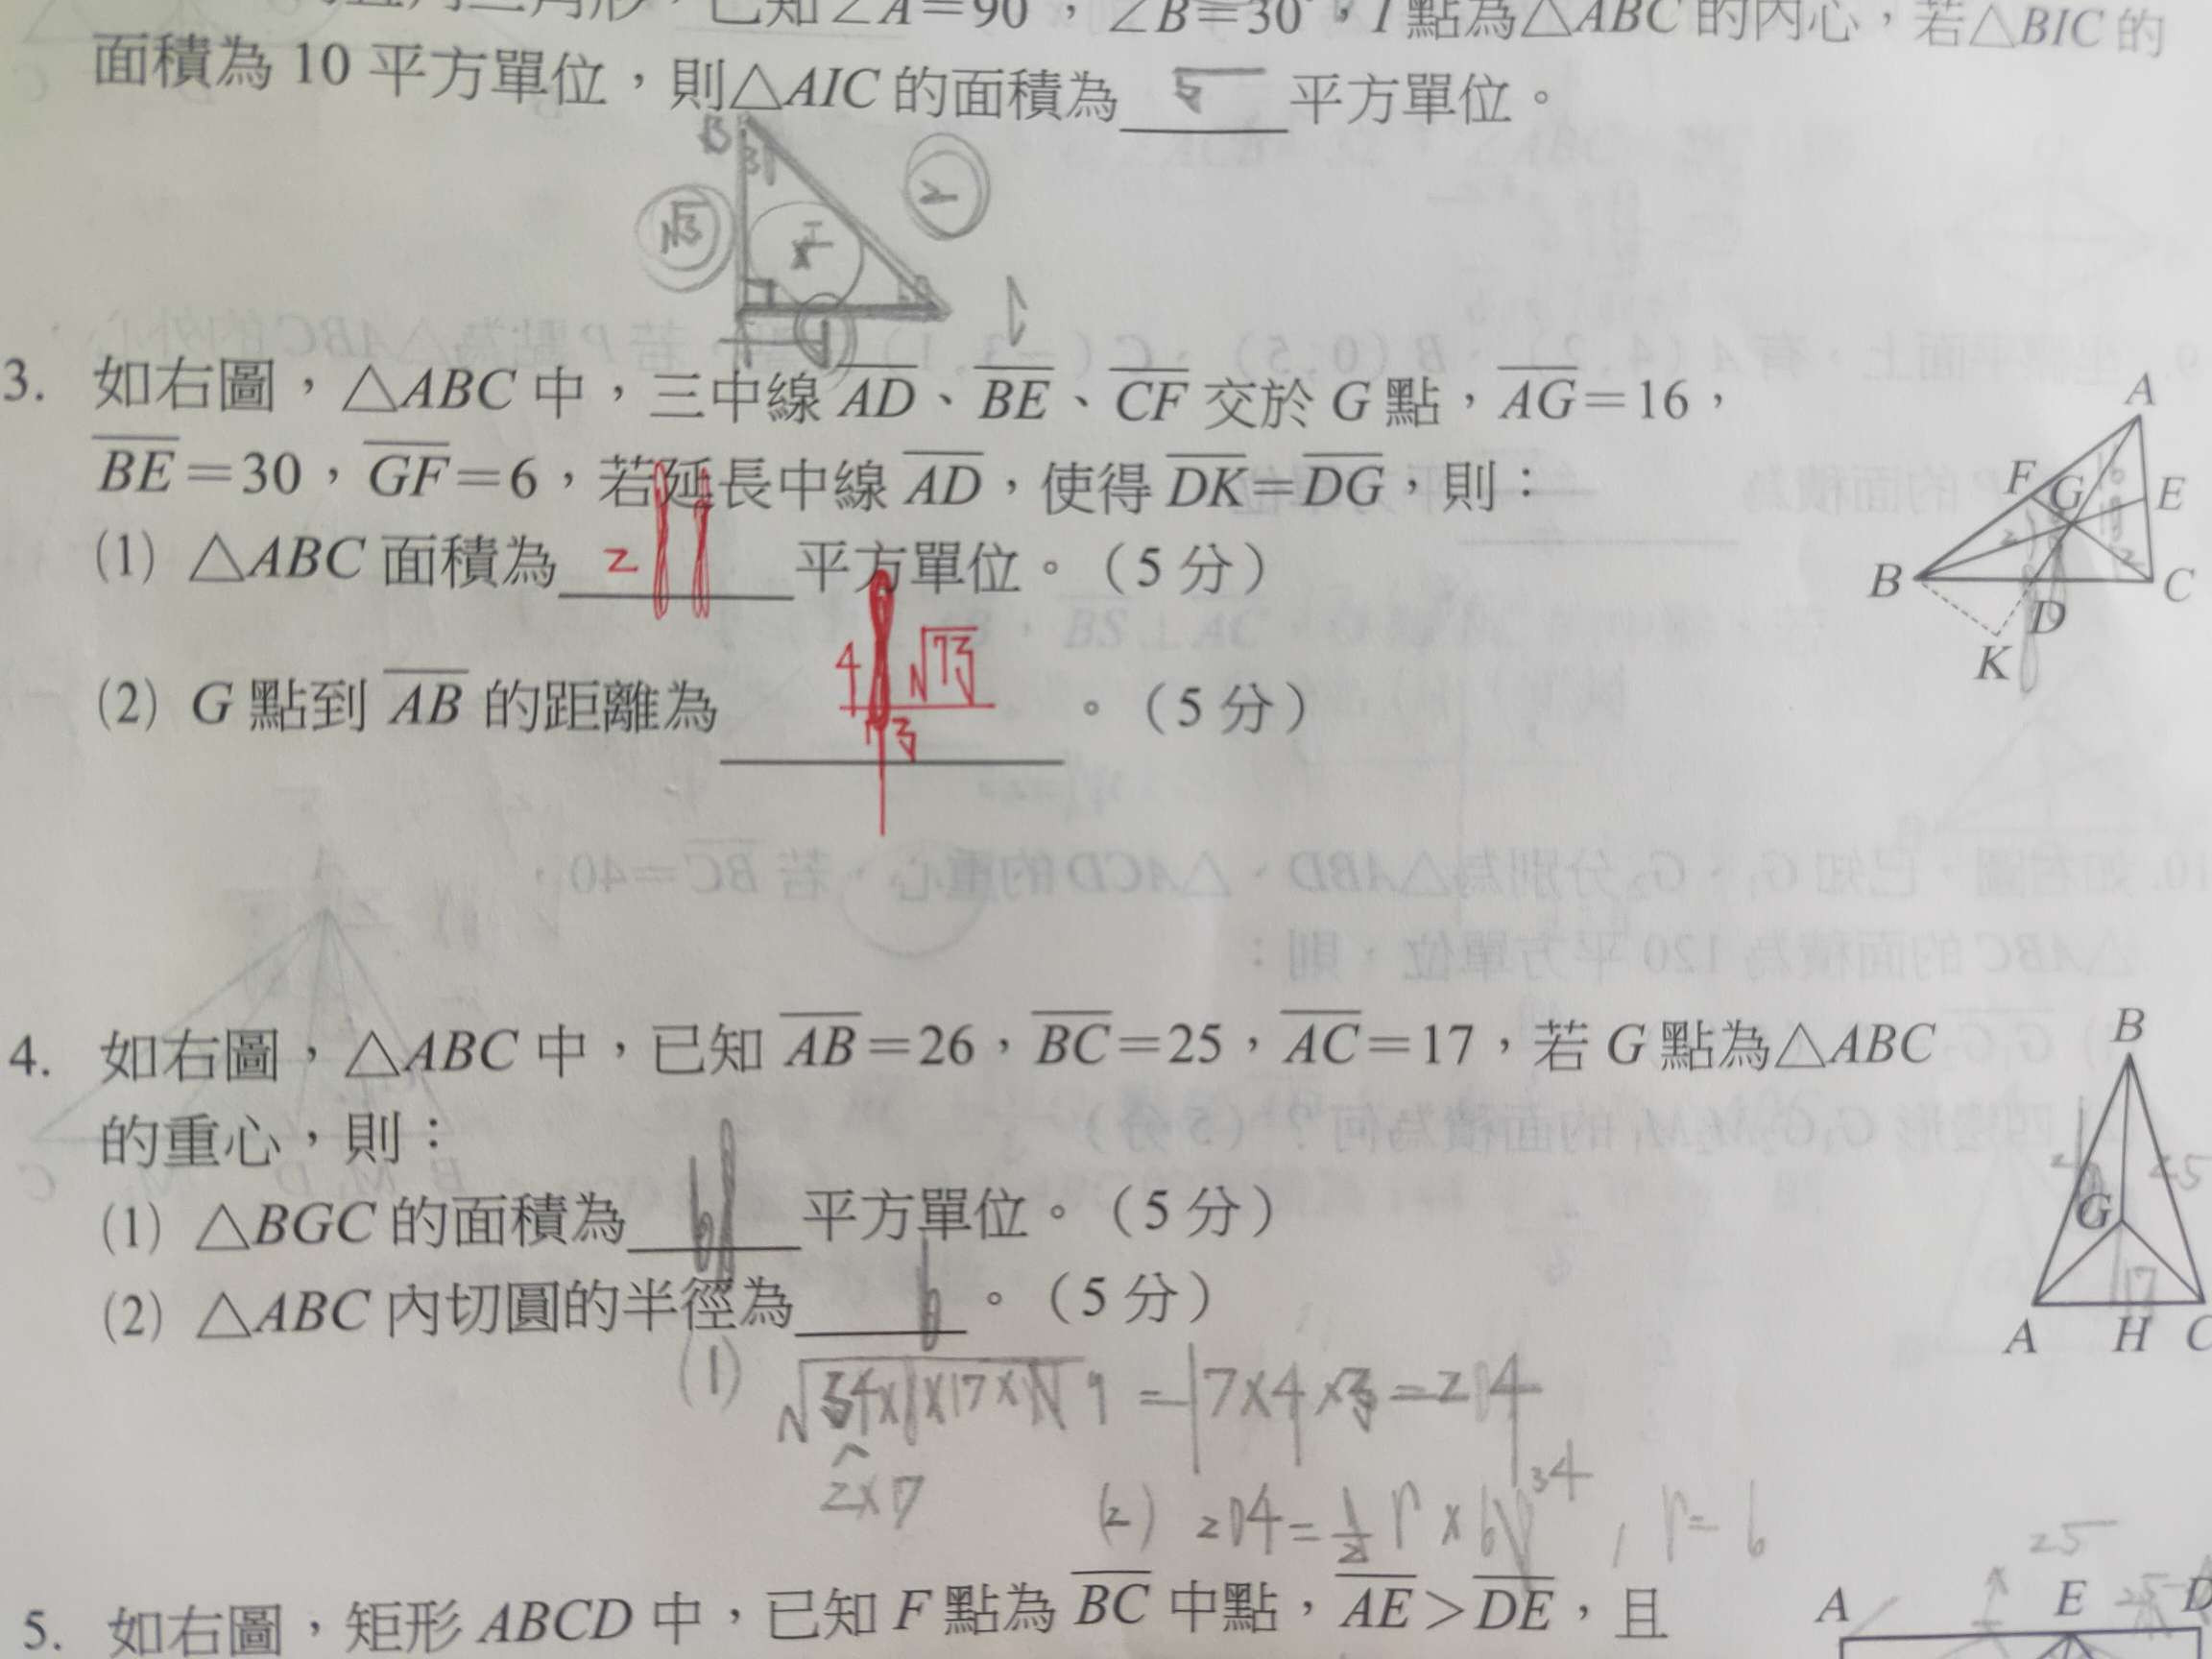 已知∠A=90°,∠B=30°,I點為△ABC的內心,若△BIC的
面積為10平方單位,則△AIC的面積為 5 平方單位。
B
√3
2
I
1
3. 如右圖,△ABC中,三中線AD、BE、CF交於G點,AG=16,
BE=30,GF=6,若延長中線AD,使得DK=DG,則:
(1) △ABC面積為 288 平方單位。(5分)
(2) G點到AB的距離為 48√73/73 。(5分)
A
F G E
B D C
K
4. 如右圖,△ABC中,已知AB=26,BC=25,AC=17,若G點為△ABC
的重心,則:
(1) △BGC的面積為 68 平方單位。(5分)
(2) △ABC內切圓的半徑為 6 。(5分)
B
25
G
17
A H C
(1)
=17×4×3=204
2×17
(2) 204=1/2 r×68 34, r=6
5. 如右圖,矩形ABCD中,已知F點為BC中點,AE>DE,且
25
A E D